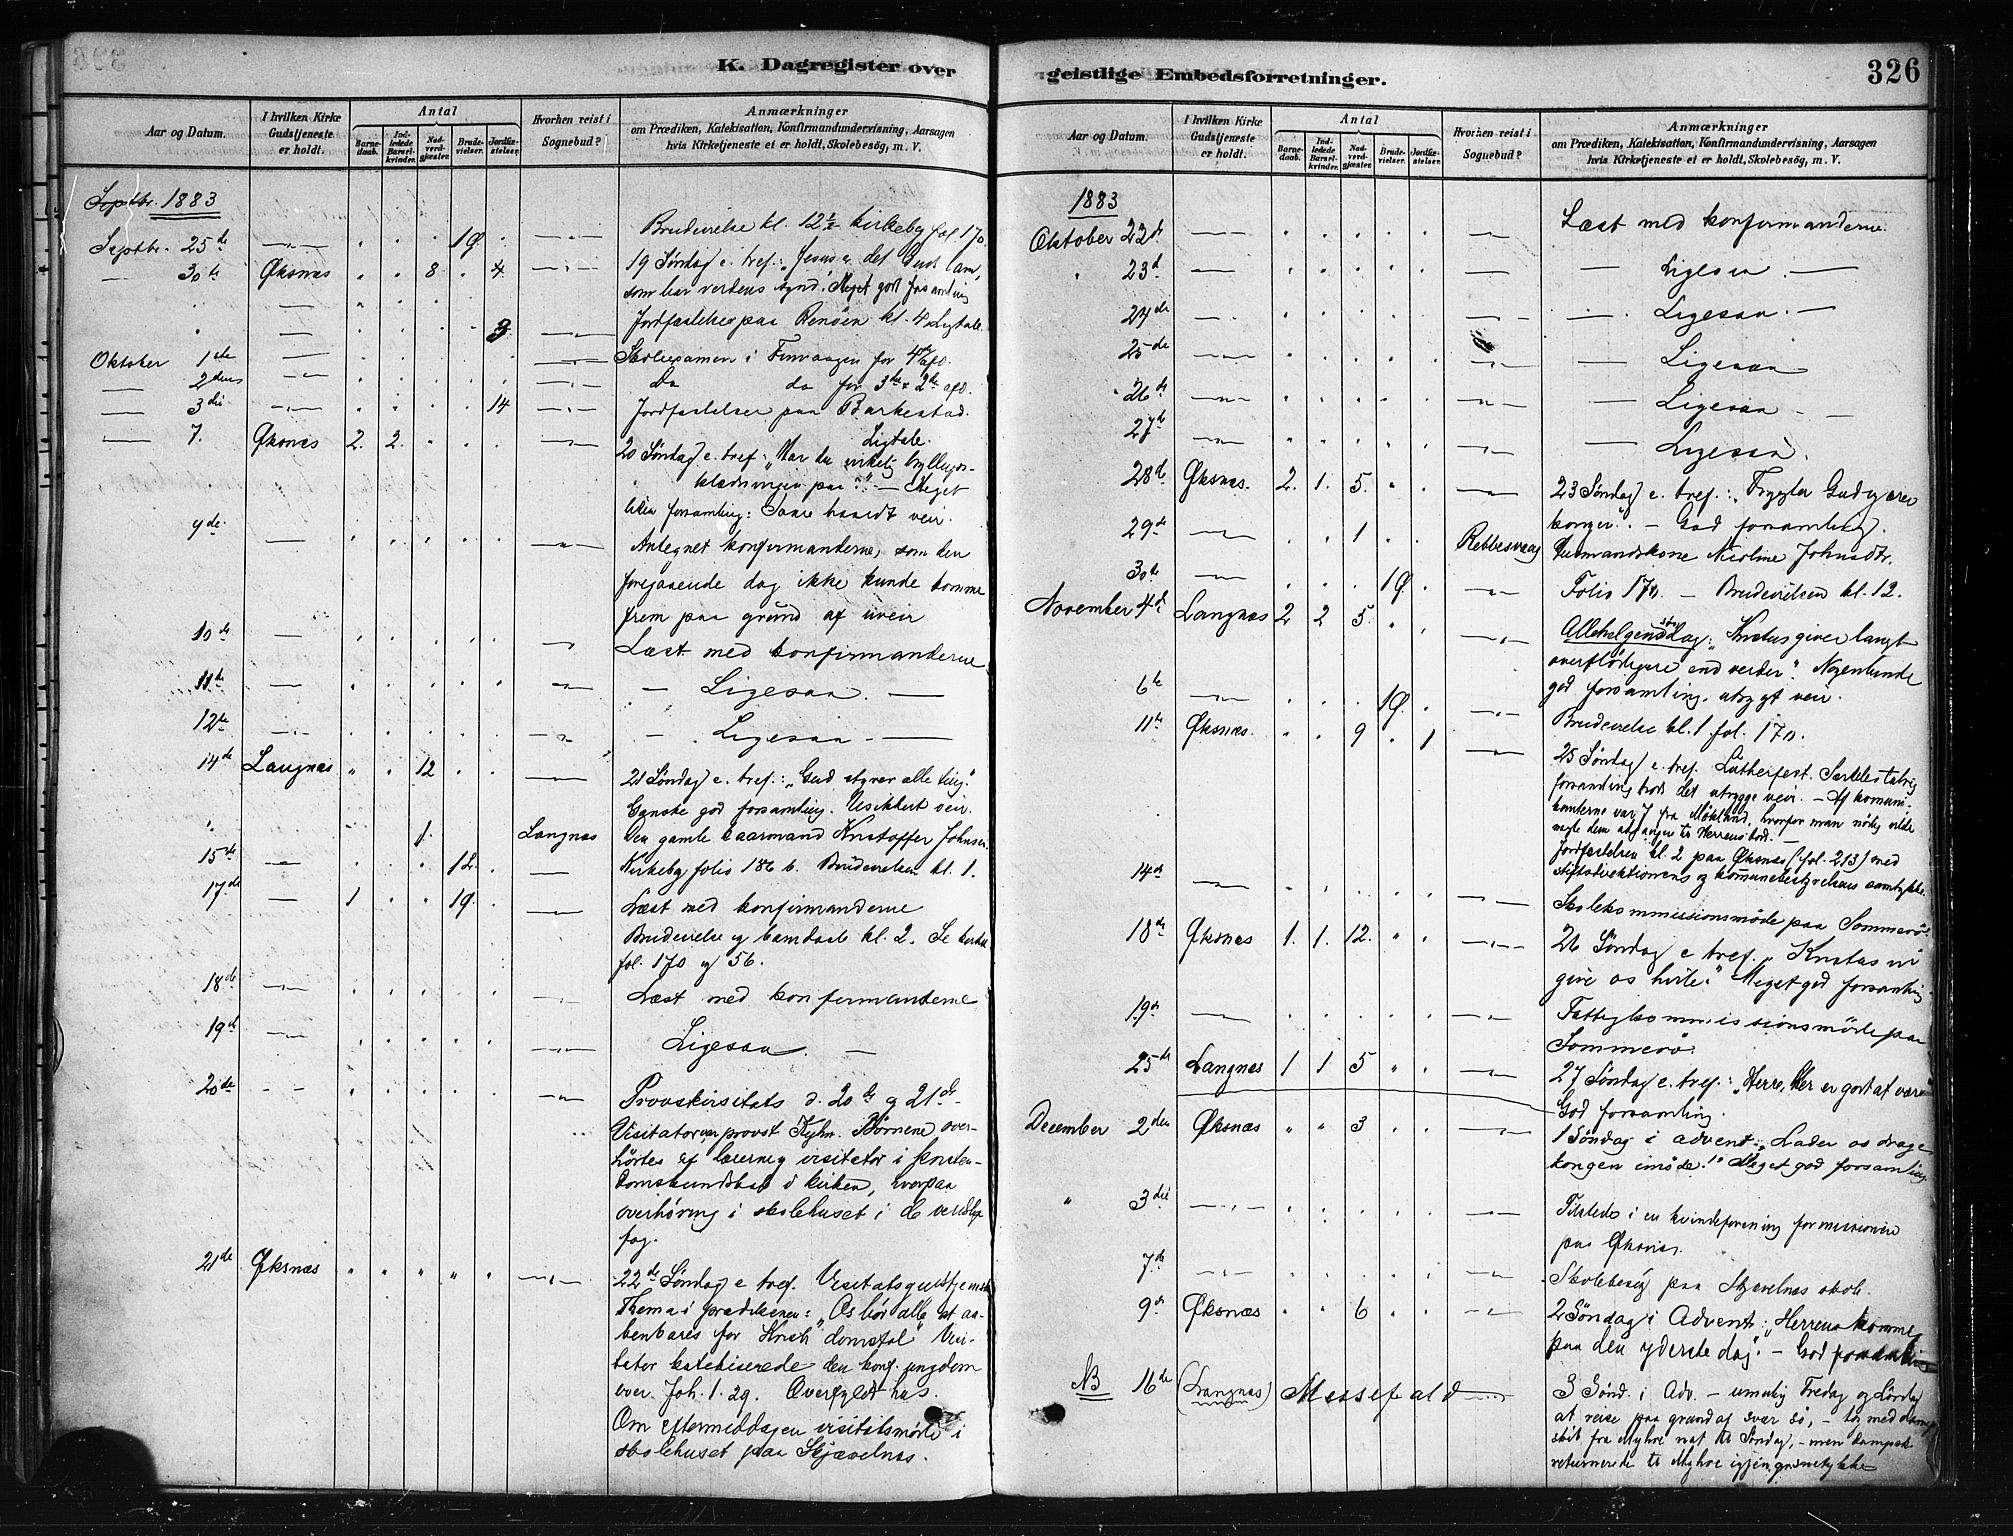 K. Dagregister over
Aar og Datum.
I hvilken Kirke Gudstjeneste er holdt.
Antal
Barnedaab.
Indledede Barselkvinder.
Nadverdgjester.
Brudevielser.
Jordfæstelser.
Hvorhen reist i Sognebud?
Anmærkninger
om Prædiken, Katekisation, Konfirmandundervisning, Aarsagen
hvis Kirketjeneste ei er holdt, Skolebesøg, m. V.
Septbr. 1883
Septbr. 25de 1 Brudevielse kl. 12½ kirkebog fol. 170.
30te Øksnæs 8 4 19 Søndag e. tref: „Jesus er det Guds lam,
som bær verdens synd." Meget god forsamling
3 Jordfæstelse paa Renöen kl. 4. Ligtale.
Oktober 1ste Skoleexamen i Finvaagen for 4de afd.
2den Do do for 3de & 2de afd.
3die 14 Jordfæstelser paa Barkestad.
Ligtale.
7. Øksnæs 2. 2. 20 Søndag e. tref: „Har du virkelig bryllups-
klædningen paa?" — Meget
liden forsamling: Saare haardt veir.
9de Antegnet konfirmanderne, som den
foregaaende dag ikke kunde komme
frem paa grund af uveir
10de Læst med konfirmanderne
11te — Ligesaa. —
12te — Ligesaa —
14de Langnæs 12 21 Søndag e. tref: „Gud styrer alle ting."
Ganske god forsamling. Usikkert veir.
1. Langnæs Den gamle kaarmand Kristoffer Johnsen
15de 1 Kirkebog folio 186 b. Brudevielse kl. 1.
17de 1 1 Læst med konfirmanderne
Brudevielse og barnedaab kl. 2. Se
fol. 170 og 56.
18de Læst med konfirmanterne
19de Ligesaa. —
20de Provstevisitats d. 20de og 21de.
Visitator var provst Kyhn. Børnene over-
hørtes af lærer og visitator i kristen-
domskundskab i kirken, hvorpaa
overhøring i skolehuset i de verdslige
fag.
21de Øksnæs 22de Søndag e tref. Visitatsgudstjeneste
Thema i prædikenen: „Os bør alle at aa-
benbares for Kristi domstol" Visi-
tator katekiserede den konf. ungdom
over Joh. 1. 29. Overfyldt hus.
Om eftermiddagen visitatsmöde i
skolehuset paa Skjævelnæs.
geistlige Embedsforretninger.
326
Aar og Datum.
I hvilken Kirke Gudstjeneste er holdt.
Antal
Barnedaab.
Indledede Barselkvinder.
Nadverdgjester.
Brudevielser.
Jordfæstelser.
Hvorhen reist i Sognebud?
Anmærkninger
om Prædiken, Katekisation, Konfirmandundervisning, Aarsagen
hvis Kirketjeneste ei er holdt, Skolebesøg, m. V.
1883
Oktober 22de Læst med konfirmanderne.
23de — Ligesaa. —
24de — Ligesaa. —
25de — Ligesaa
26de — Ligesaa —
27de — Ligesaa.
28de Øksnæs. 2. 1. 5. 23 Søndag e. tref.: „Frygter Gud og ærer
kongen". — God forsamling.
29de 1 Rebbesvaag Husmandskone Nicoline Johnsdtr.
30te 1 Folio 170. — Brudevielsen kl. 12.
November 4de Langnæs 2 2 5. Allehelgensdag: „Kristus giver langt
overflødigere end verden". Nogenlunde
god forsamling, utrygt veir.
6te 1 Brudevielse kl. 1. fol. 170.
11te Øksnæs. 9 1 25 Søndag e. tref. Lutherfest. Særdeles talrig
forsamling trods det utrygge veir. — Af kommuni-
kanterne var 7 fra Møkland, hvorfor man nødig vilde
nægte dem adgangen til Herrens bord. —
Jordfæstelsen kl. 2 paa Øksnæs (fol. 213) med
stiftsdirektionens og kommunebestyrelsens samtykke.
14de Skolekommissionsmöde paa Sommerö.
18de Øksnæs 1. 1. 12. 26 Søndag e tref. „Kristus vil
give os hvile." Meget god forsamling
19de Fattigkommissionsmöde paa
Sommerö
25de Langnæs 1 1 5 27 Søndag e. tref.: „Herre, her er godt at være"
God forsamling.
December 2den Øksnæs 3 1 Søndag i advent: „Lader os drage
kongen imöde." Meget god forsamling
3die Tilstede i en kvindeforening for missionen
paa Øksnæs.
7de Skolebesög paa Skjævelnæs skole.
9de Øksnæs 6 2 Søndag i Advent: „Herrens komme
paa den yderste dag". — God forsamling
NB 16de (Langnæs) Messefald 3 Sönd. i Adv. — umulig Fredag og Lördag
at reise paa grund af svær sö, — tog med damp-
skib fra Myhre nat til Söndag, — men dampsk.
returnerede til Myhre igjen,